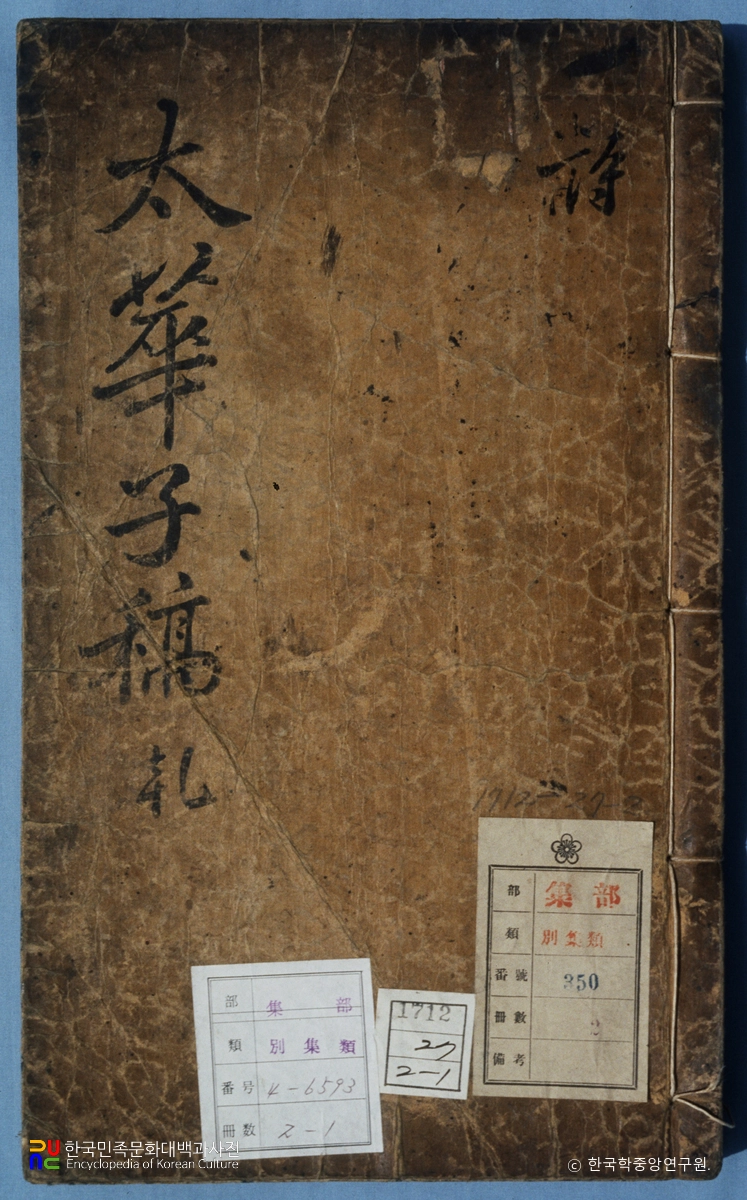 太華子稿 乹
部 集部
類 別集類
番號 350
冊數 2
備考
部 集部
類 別集類
番号 4-6593
冊数 2-1
1712
27
2-1
한국민족문화대백과사전
Encyclopedia of Korean Culture
© 한국학중앙연구원.